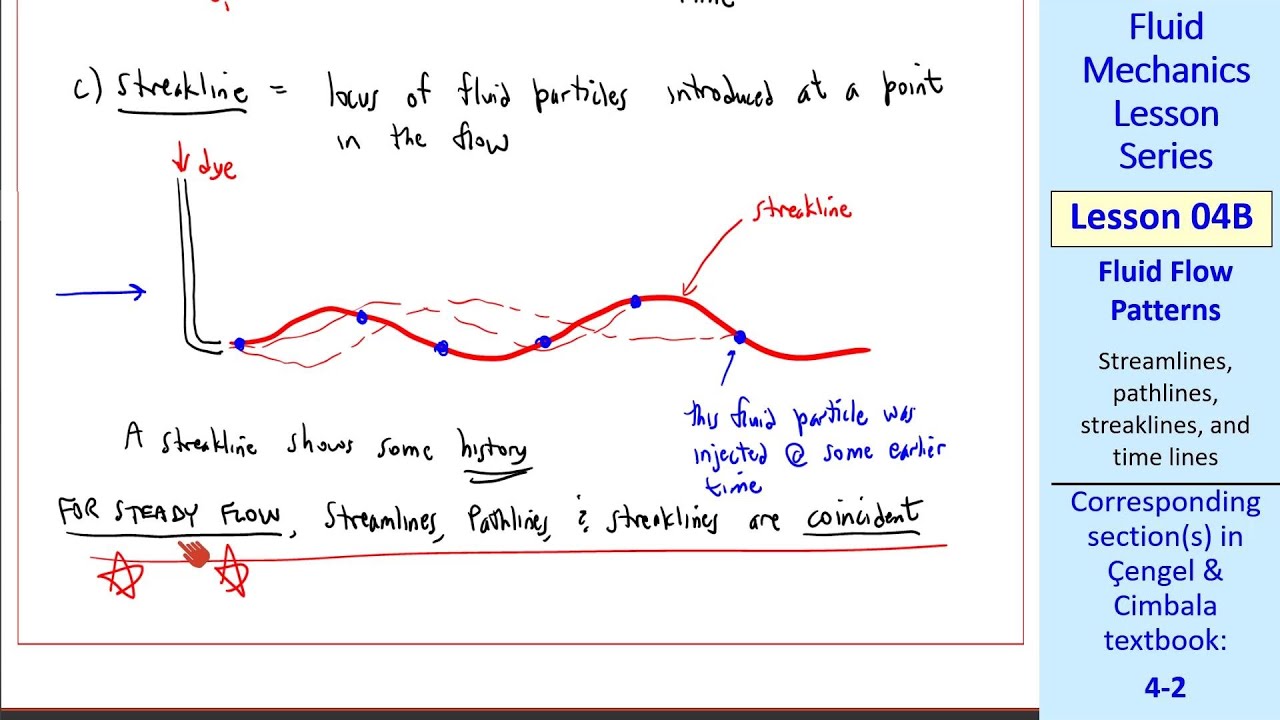 time
c) Streakline = locus of fluid particles introduced at a point
in the flow
dye
streakline
This fluid particle was
injected @ some earlier
time
A streakline shows some history
FOR STEADY FLOW, Streamlines, Pathlines, & streaklines are coincident
Fluid
Mechanics
Lesson
Series
Lesson 04B
Fluid Flow
Patterns
Streamlines,
pathlines,
streaklines, and
time lines
Corresponding
section(s) in
Çengel &
Cimbala
textbook:
4-2